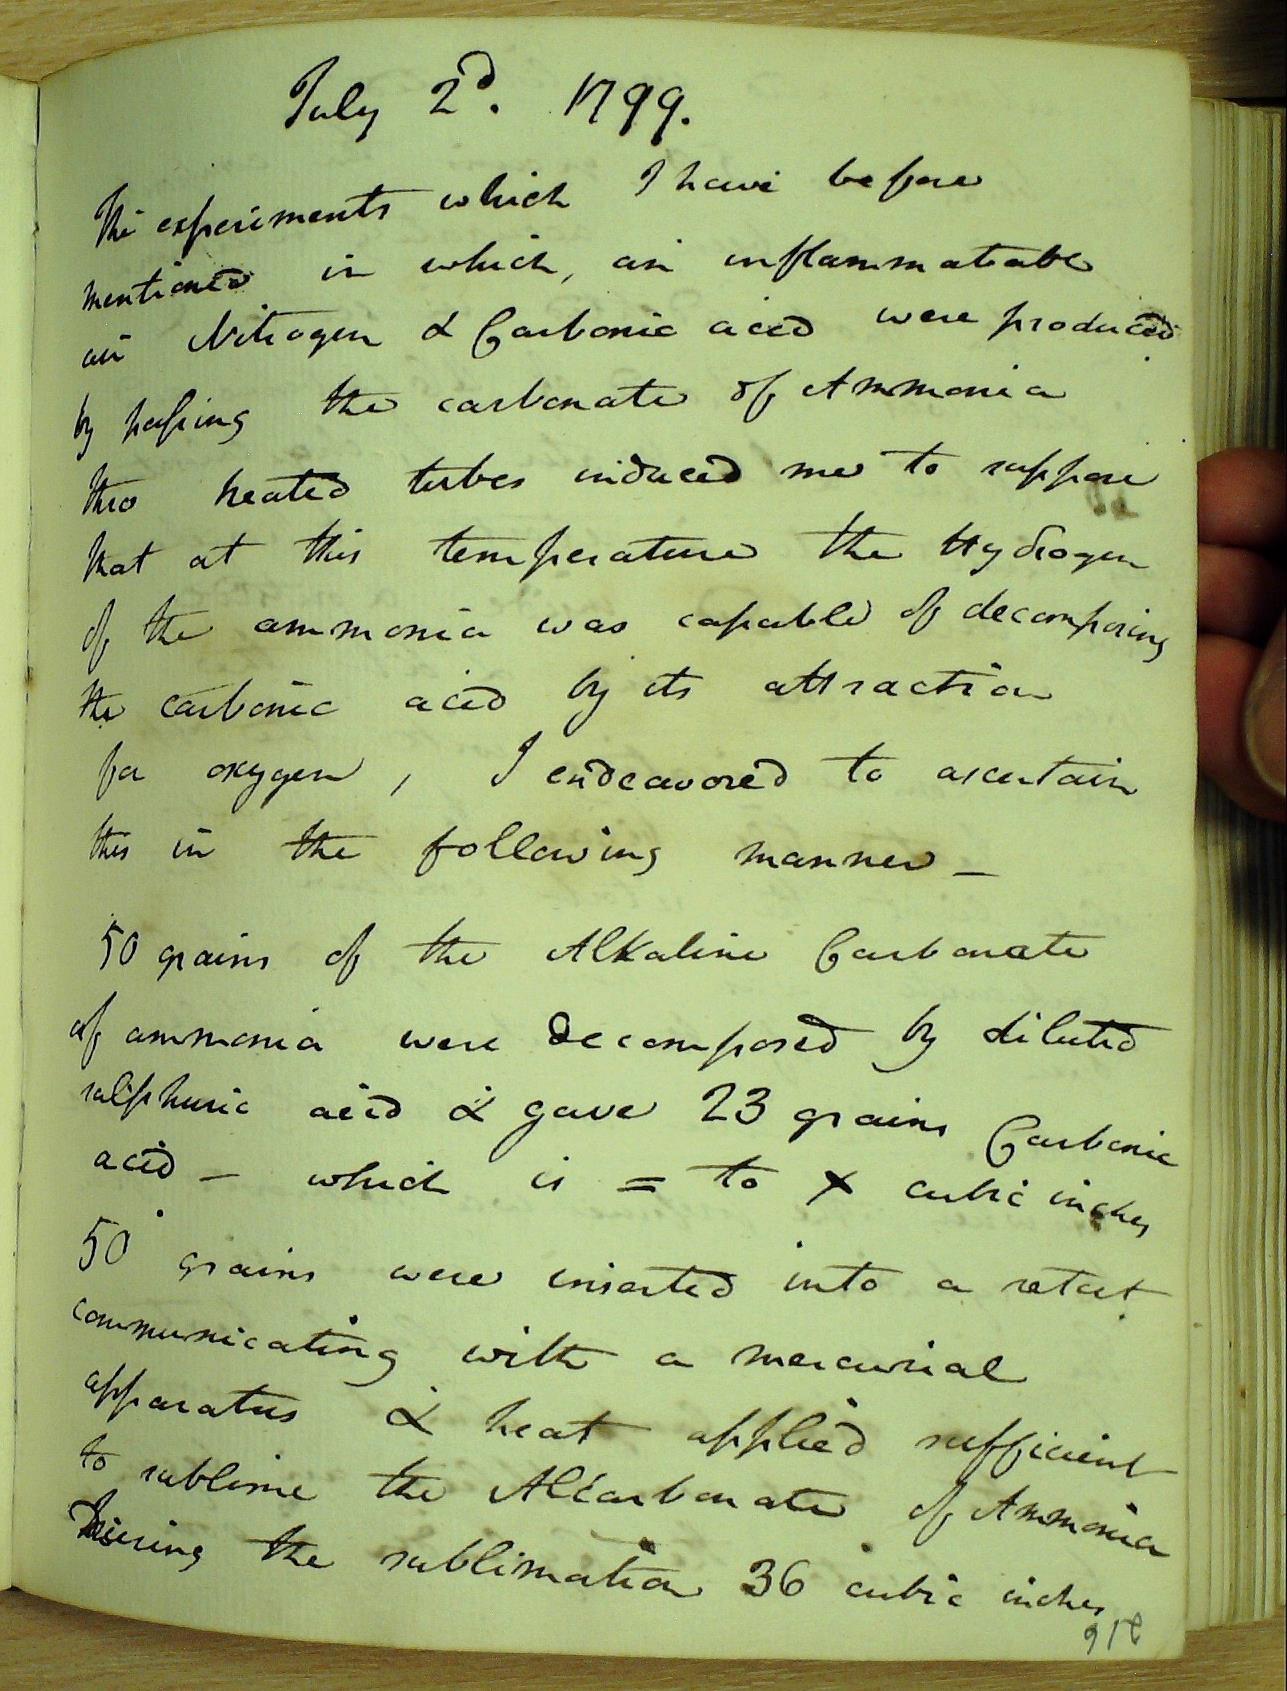 July 2d. 1799.
The experiments which I have before
mentioned in which, an inflammable
air Nitrogen & Carbonic acid were produced
by passing the carbonate of Ammonia
thro heated tubes induced me to suppose
that at this temperature the Hydrogen
of the ammonia was capable of decomposing
the carbonic acid by its attraction
for oxygen, I endeavored to ascertain
this in the following manner _
50 grains of the Alkaline Carbonate
of ammonia were decomposed by diluted
sulphuric acid & gave 23 grains Carbonic
acid – which is = to x cubic inches
50 grains were inserted into a retort
communicating with a mercurial
apparatus & heat applied sufficient
to sublime the Alcarbonate of Ammonia
During the sublimation 36 cubic inches